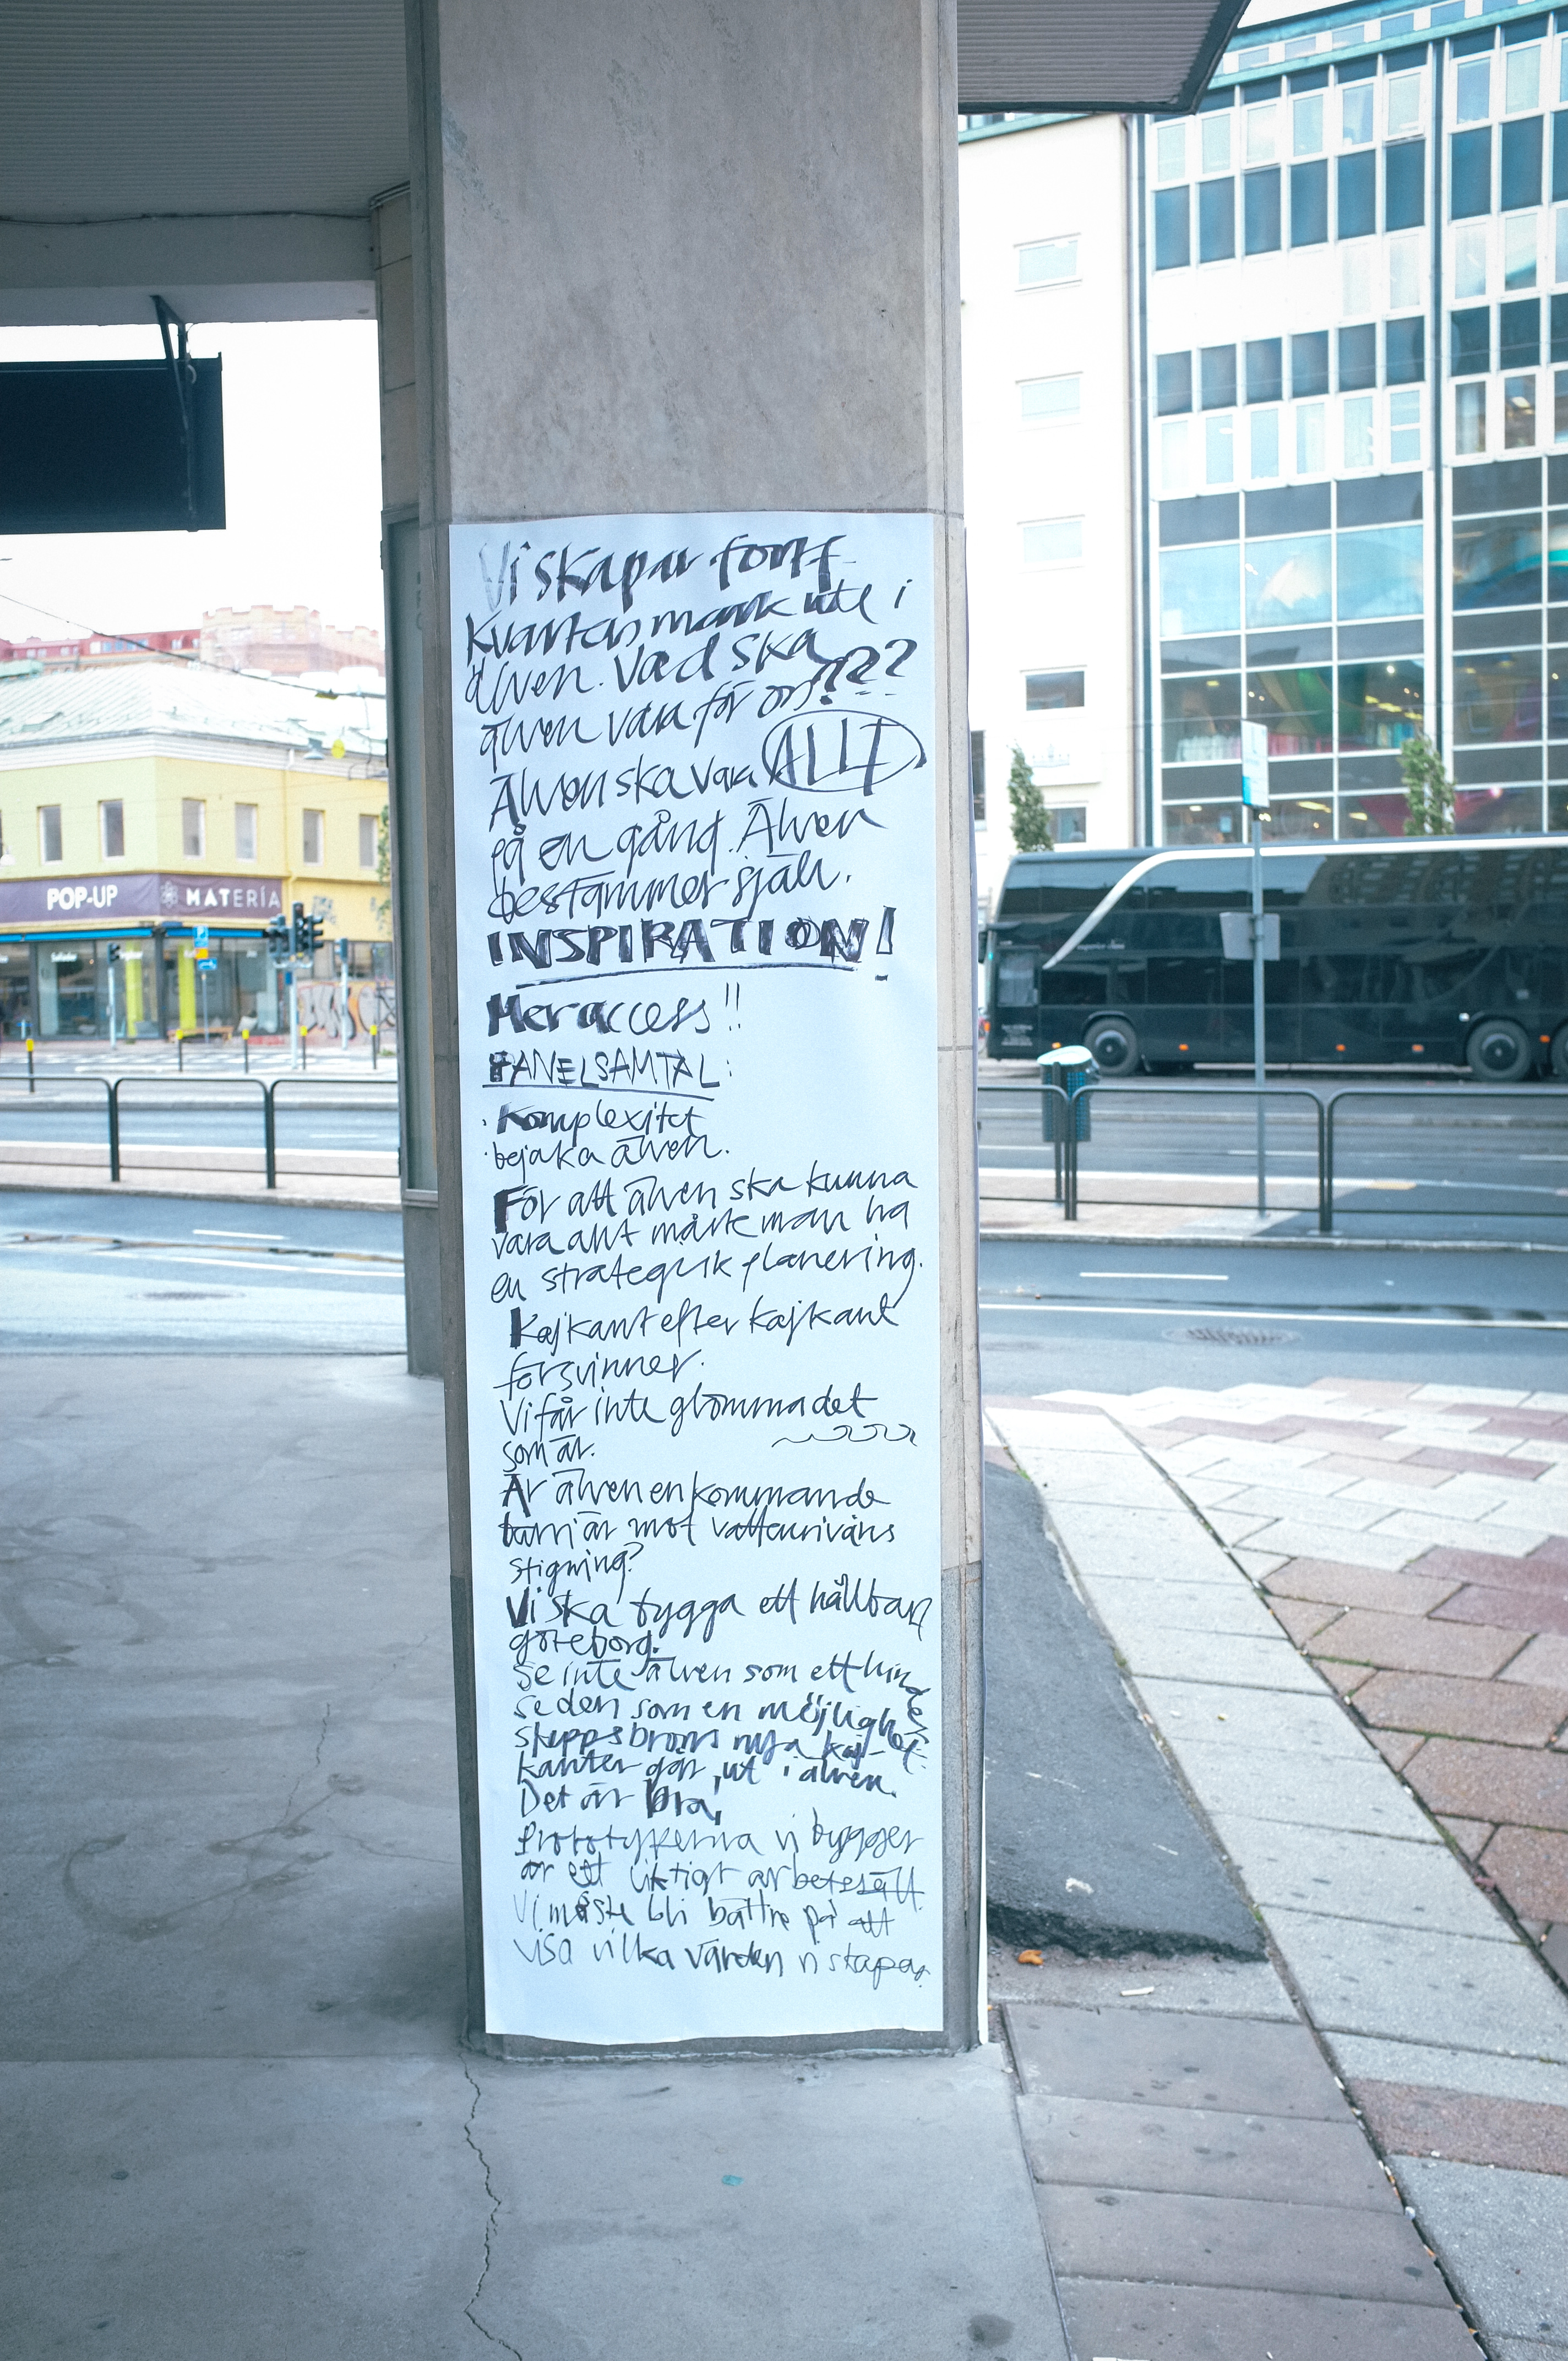 Vi skapar fortf
kvartersmark ute i
älven. Vad ska
älven vara för oss???
Älven ska vara ALLT
på en gång. Älven
bestämmer själv.
INSPIRATION!
Mer access!!
PANELSAMTAL:
· Komplexitet
· bejaka älven.
För att älven ska kunna
vara allt måste man ha
en strategisk planering.
Kajkant efter kajkant
försvinner.
Vi får inte glömma det
som är.
Är älven en kommande
barriär mot vattennivåns
stigning?
Vi ska bygga ett hållbart
göteborg.
Se inte älven som ett hinder
se den som en möjlighet.
skeppsbrons nya kaj-
kanter går ut i älven.
Det är bra,
Prototyperna vi bygger
är ett viktigt arbetssätt.
Vi måste bli bättre på att
visa vilka värden vi skapar.
POP-UP
MATERIA